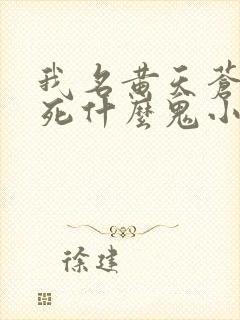 我名黄天蒼
死什麼鬼小
徐建